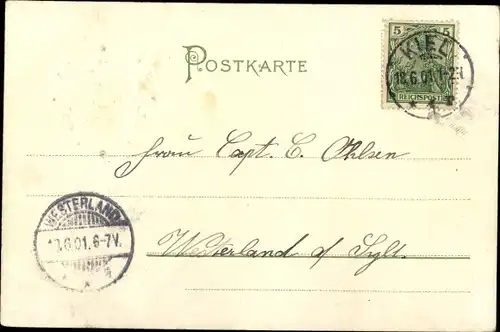 POSTKARTE
5 5
REICHSPOST
KIEL
18.6.01.1-2N
Frau Capt. C. Ohlsen
WESTERLAND
.6.01.6-7V.
Westerland a/ Sylt.